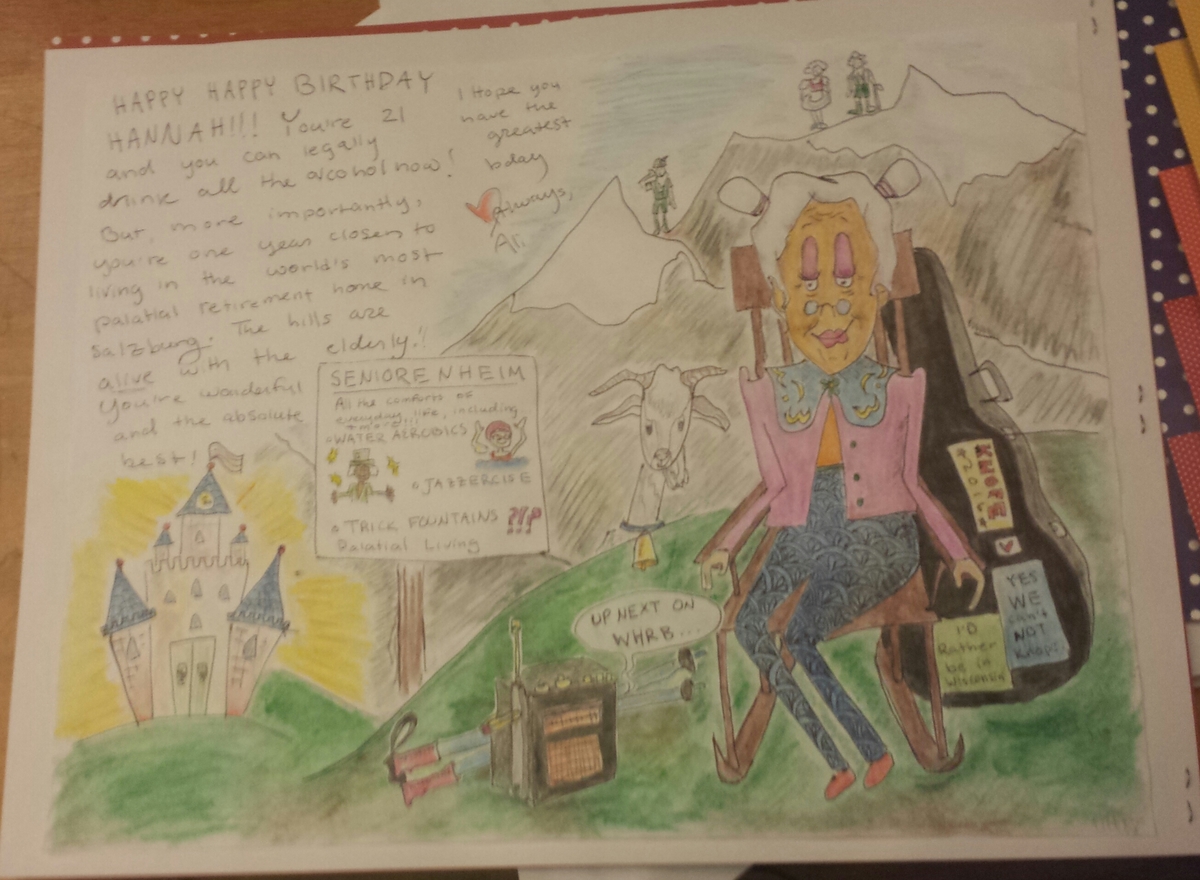 HAPPY HAPPY BIRTHDAY
HANNAH!!! You're 21
and you can legally
drink all the alcohol now!
But, more importantly,
you're one year closer to
living in the world's most
palatial retirement home in
Salzburg. The hills are
alive with the elderly!!
You're wonderful
and the absolute
best!
I Hope you
have the
greatest
bday
Always,
Ali
SENIORENHEIM
All the comforts of
everyday life, including
WATER AEROBICS
JAZZERCISE
TRICK FOUNTAINS ???
Palatial Living
UP NEXT ON
WHRB...
YES
WE
can't
NOT
I'D
Rather
be in
Wisconsin